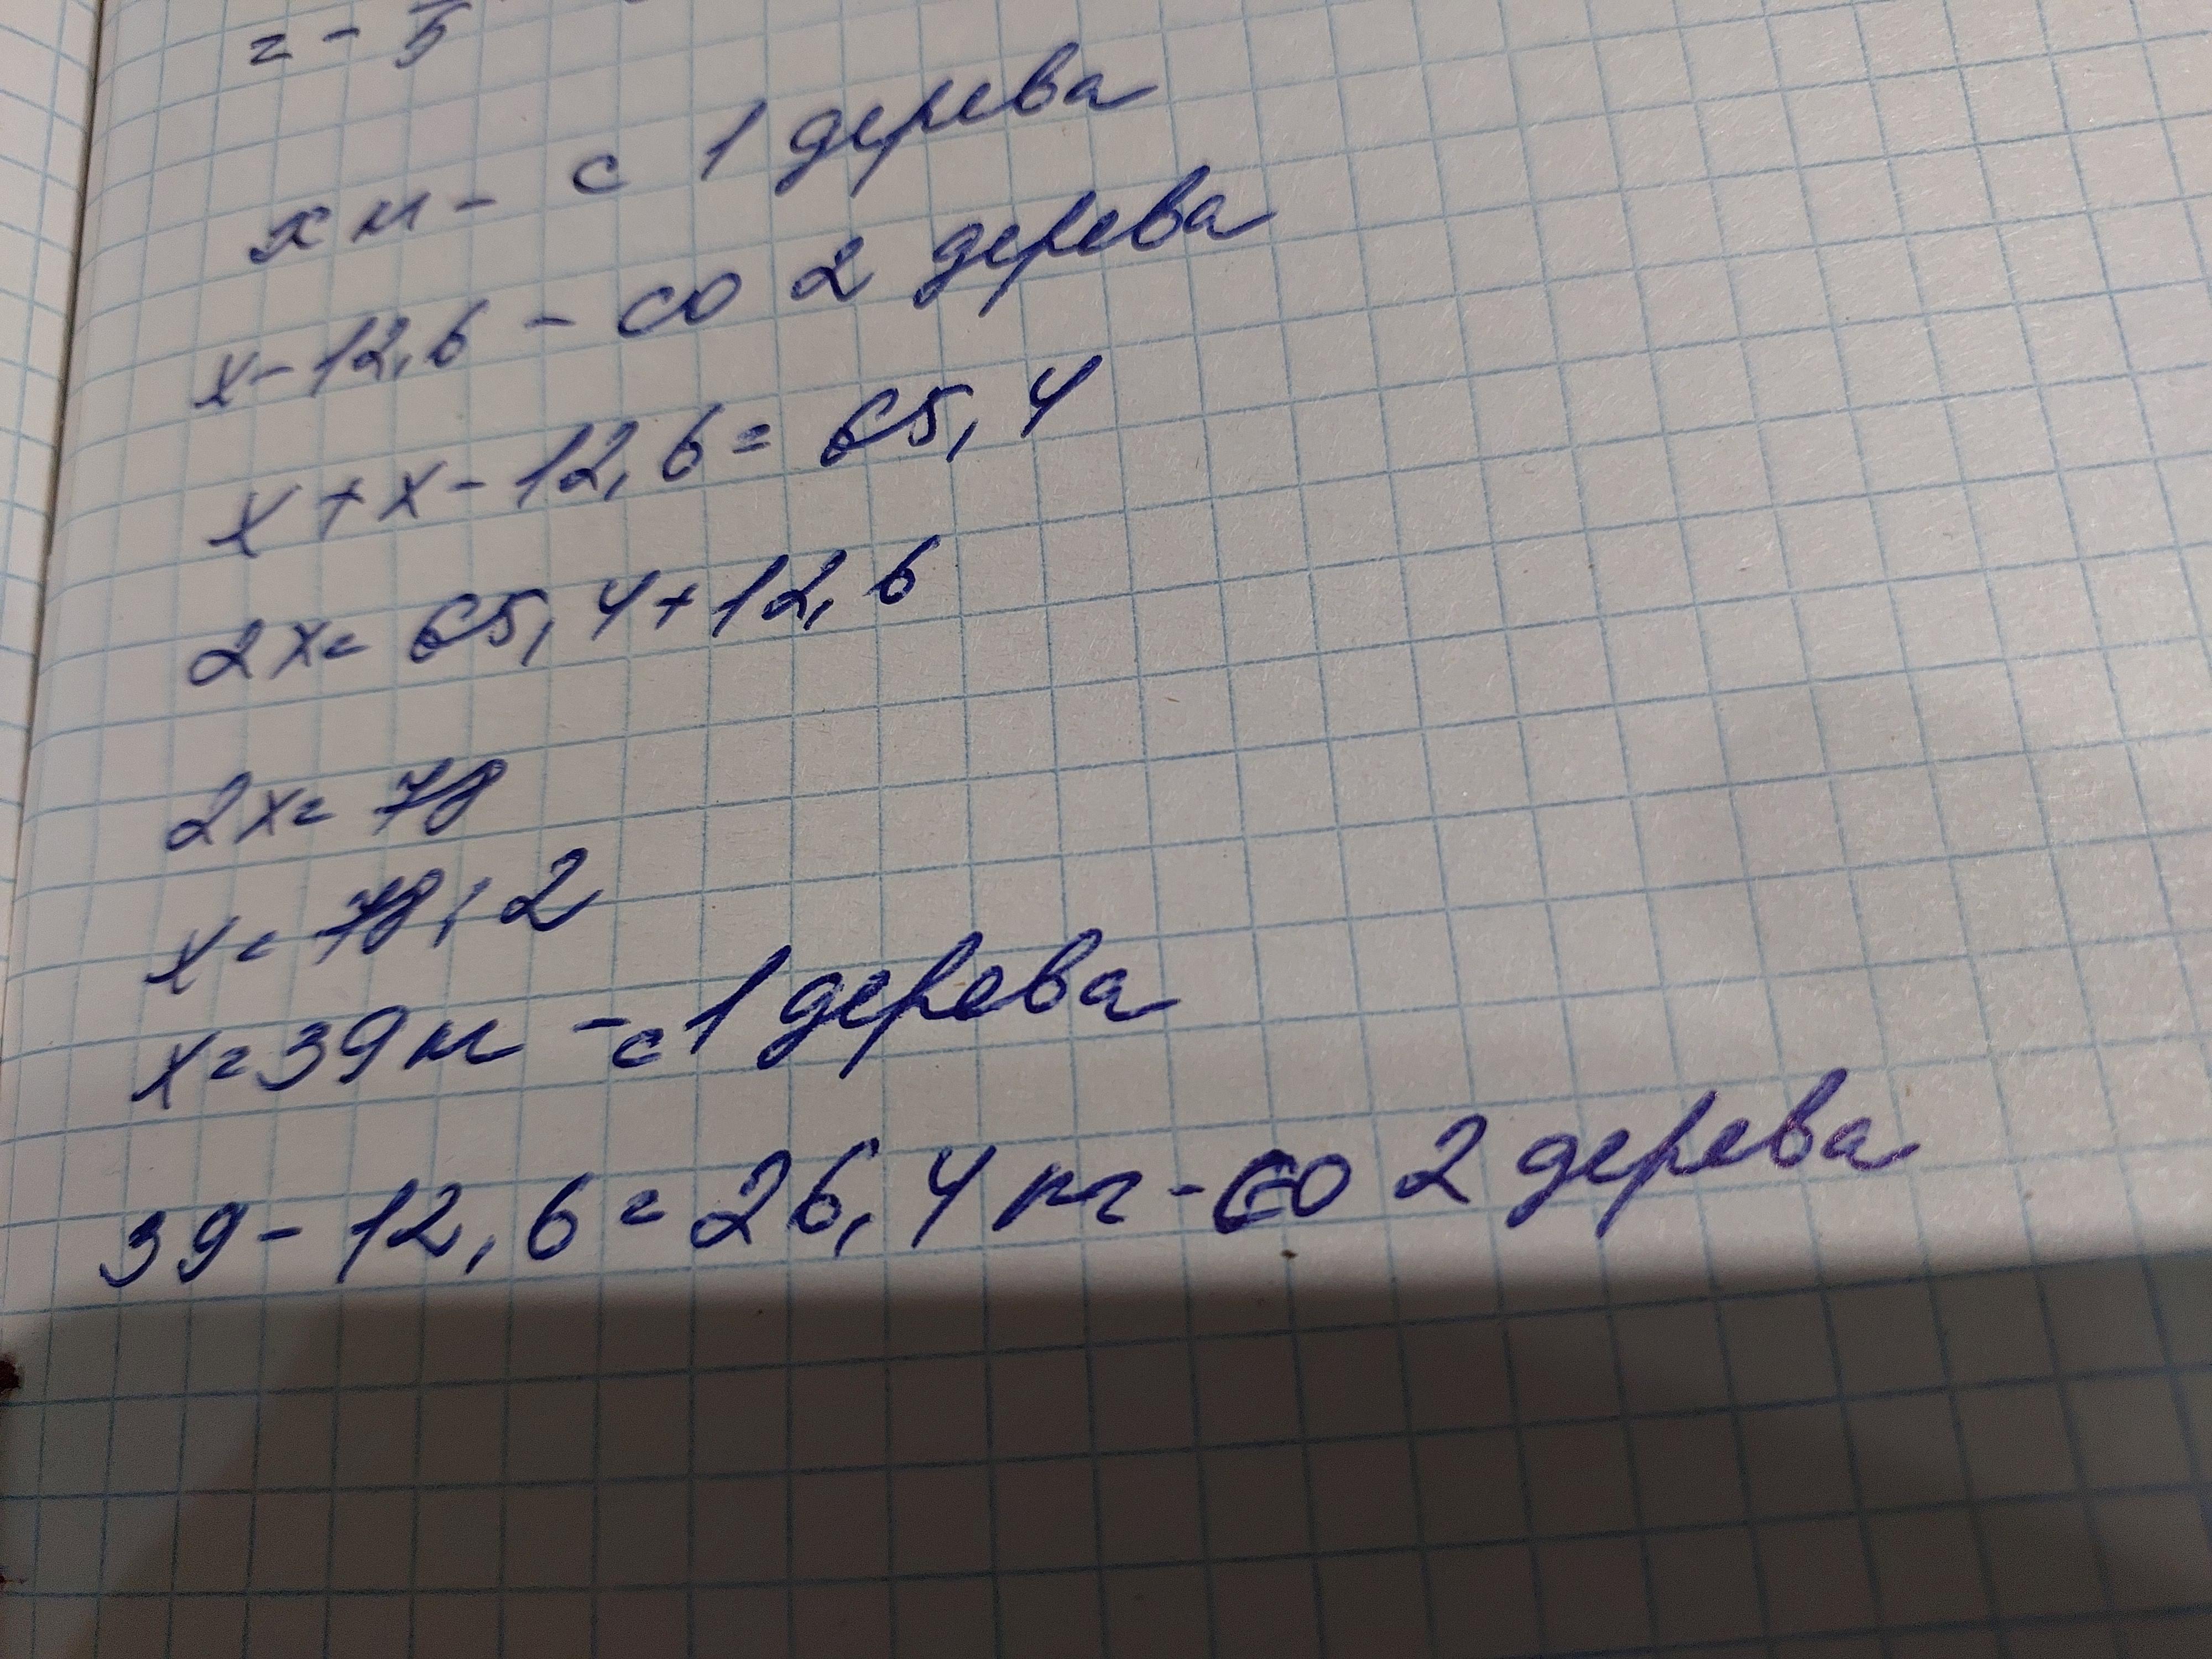 = - 5
x кг - с 1 дерева
x - 12,6 - со 2 дерева
x + x - 12,6 = 65,4
2x = 65,4 + 12,6
2x = 78
x = 78 : 2
x = 39 кг - с 1 дерева
39 - 12,6 = 26,4 кг - со 2 дерева